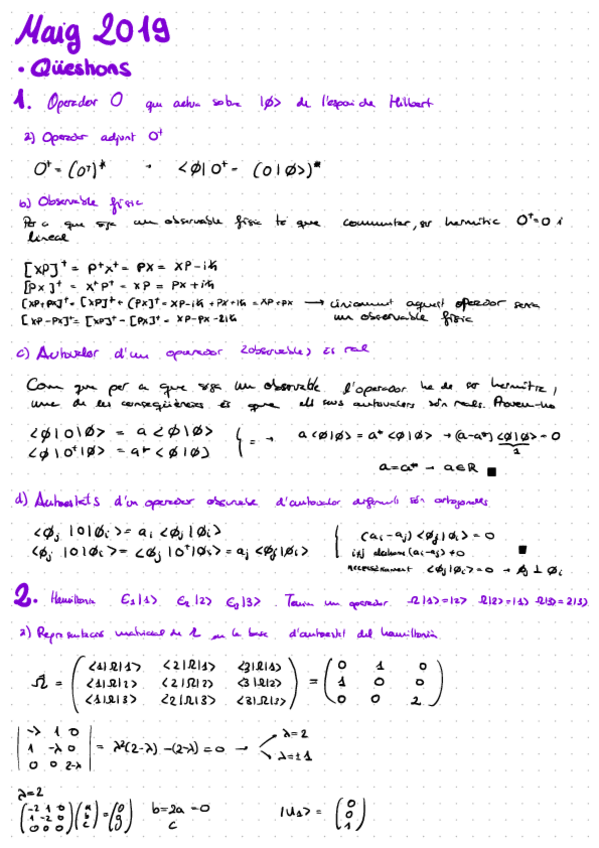 Maig 2019
• Qüestions
1. Operador O que actua sobre |ϕ> de l'espai de Hilbert
a) Operador adjunt O⁺
O⁺ = (Oᵀ)* <ϕ|O⁺ = (O|ϕ>)*
b) Observable físic
Per a que siga un observable físic té que commutar, ser hermític O⁺=O i
lineal
[XP]⁺ = P⁺X⁺ = PX = XP-iħ
[PX]⁺ = X⁺P⁺ = XP = PX+iħ
[XP+PX]⁺ = [XP]⁺+[PX]⁺ = XP-iħ+PX+iħ = XP+PX → únicament aquest operador seria
[XP-PX]⁺ = [XP]⁺-[PX]⁺ = XP-PX-2iħ un observable físic
c) Autovalor d'un operador (observable) és real
Com que per a que siga un observable l'operador ha de ser hermític,
una de les conseqüències és que els seus autovalors són reals. Provem-ho
<ϕ|O|ϕ> = a<ϕ|ϕ> { = → a<ϕ|ϕ> = a*<ϕ|ϕ> → (a-a*)<ϕ|ϕ> = 0
<ϕ|O⁺|ϕ> = a*<ϕ|ϕ> 1
a=a* → a∈R ■
d) Autoestats d'un operador observable d'autovalor diferent són ortogonals
<ϕⱼ|O|ϕᵢ> = aᵢ<ϕⱼ|ϕᵢ> { (aᵢ-aⱼ)<ϕⱼ|ϕᵢ> = 0
<ϕⱼ|O|ϕᵢ> = <ϕⱼ|O⁺|ϕᵢ> = aⱼ<ϕⱼ|ϕᵢ> (aᵢ-aⱼ)≠0 ■
necessàriament <ϕⱼ|ϕᵢ> = 0 → ϕⱼ ⊥ ϕᵢ
2. Hamiltonià ε₁|1> ε₂|2> ε₃|3>. Tenim un operador Ω|1>=|2> Ω|2>=|1> Ω|3>=2|3>
a) Representació matricial de Ω en la base d'autoestat del hamiltonià
Ω = ( <1|Ω|1> <2|Ω|1> <3|Ω|1> ) = ( 0 1 0 )
( <1|Ω|2> <2|Ω|2> <3|Ω|2> ) ( 1 0 0 )
( <1|Ω|3> <2|Ω|3> <3|Ω|3> ) ( 0 0 2 )
| -λ 1 0 | λ=2
| 1 -λ 0 | = λ²(2-λ) -(2-λ) = 0 →
| 0 0 2-λ | λ=±1
λ=2
( -2 1 0 ) ( a ) ( 0 ) b=2a=0 |u₁> = ( 0 )
( 1 -2 0 ) ( b ) = ( 0 ) c ( 0 )
( 0 0 0 ) ( c ) ( 0 ) ( 1 )